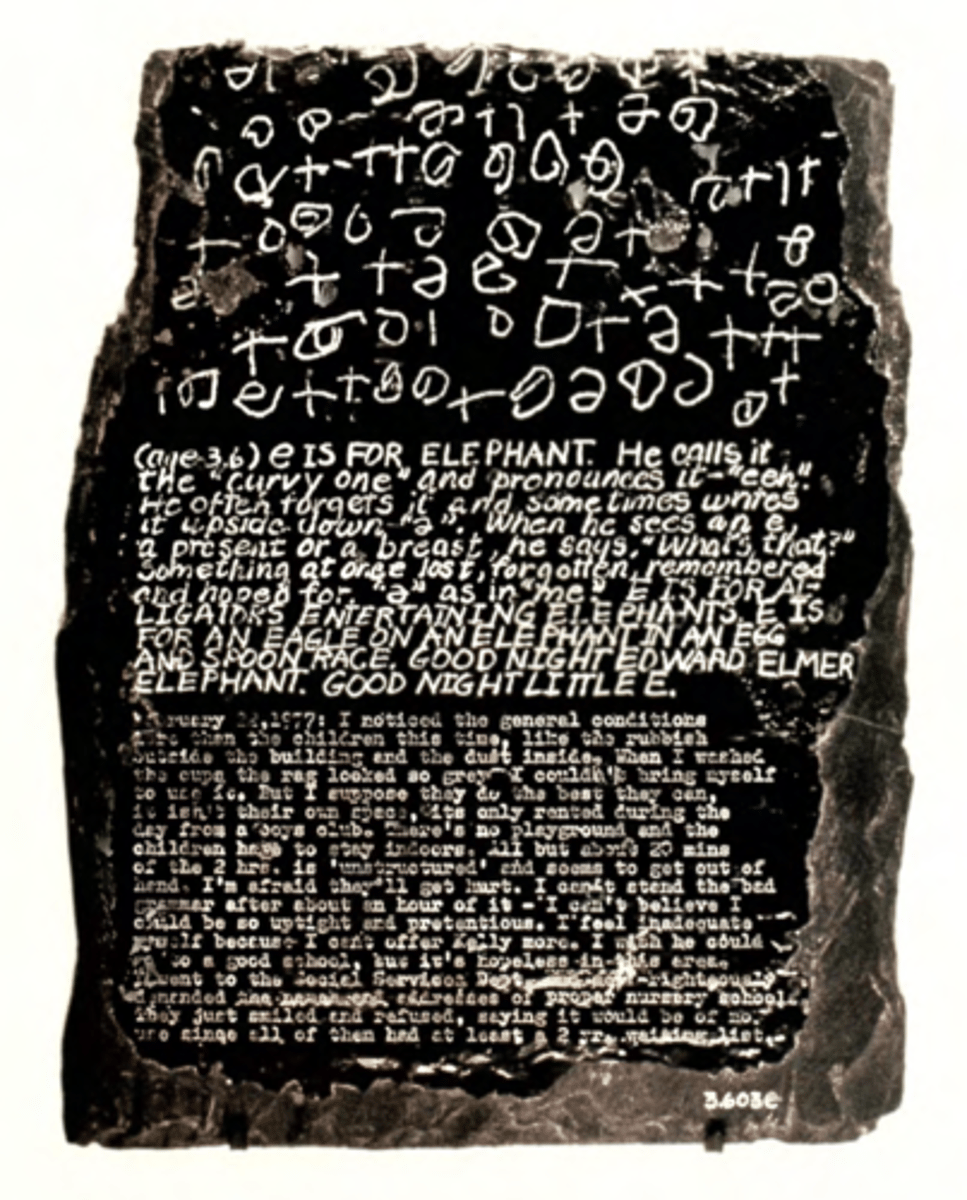 (age 3.6) e IS FOR ELEPHANT. He calls it
the "curvy one" and pronounces it-"eeh".
He often forgets it and sometimes writes
it upside down "ə". When he sees an e,
a present or a breast, he says, "What's that?"
Something at once lost, forgotten, remembered
and hoped for. "ə" as in "me" E IS FOR AL-
LIGATORS ENTERTAINING ELEPHANTS. E IS
FOR AN EAGLE ON AN ELEPHANT IN AN EGG
AND SPOON RACE. GOOD NIGHT EDWARD ELMER
ELEPHANT. GOOD NIGHT LITTLE E.
1977: I noticed the general conditions
more than the children this time, like the rubbish
outside the building and the dust inside. When I washed
the cups the rag looked so grey I couldn't bring myself
to use it. But I suppose they do the best they can,
it isn't their own space, its only rented during the
day from a boys club. There's no playground and the
children have to stay indoors. All but about 20 mins
of the 2 hrs. is 'unstructured' and seems to get out of
hand. I'm afraid they'll get hurt. I can't stand the bad
grammar after about an hour of it - I can't believe I
could be so uptight and pretentious. I feel inadequate
myself because I cant offer Kelly more. I wish he could
go to a good school, but it's hopeless in this area.
I went to the Social Services Dept. -righteously
demanded the addresses of proper nursery schools
They just smiled and refused, saying it would be of no
use since all of them had at least a 2 yr. waiting list.
3.603e